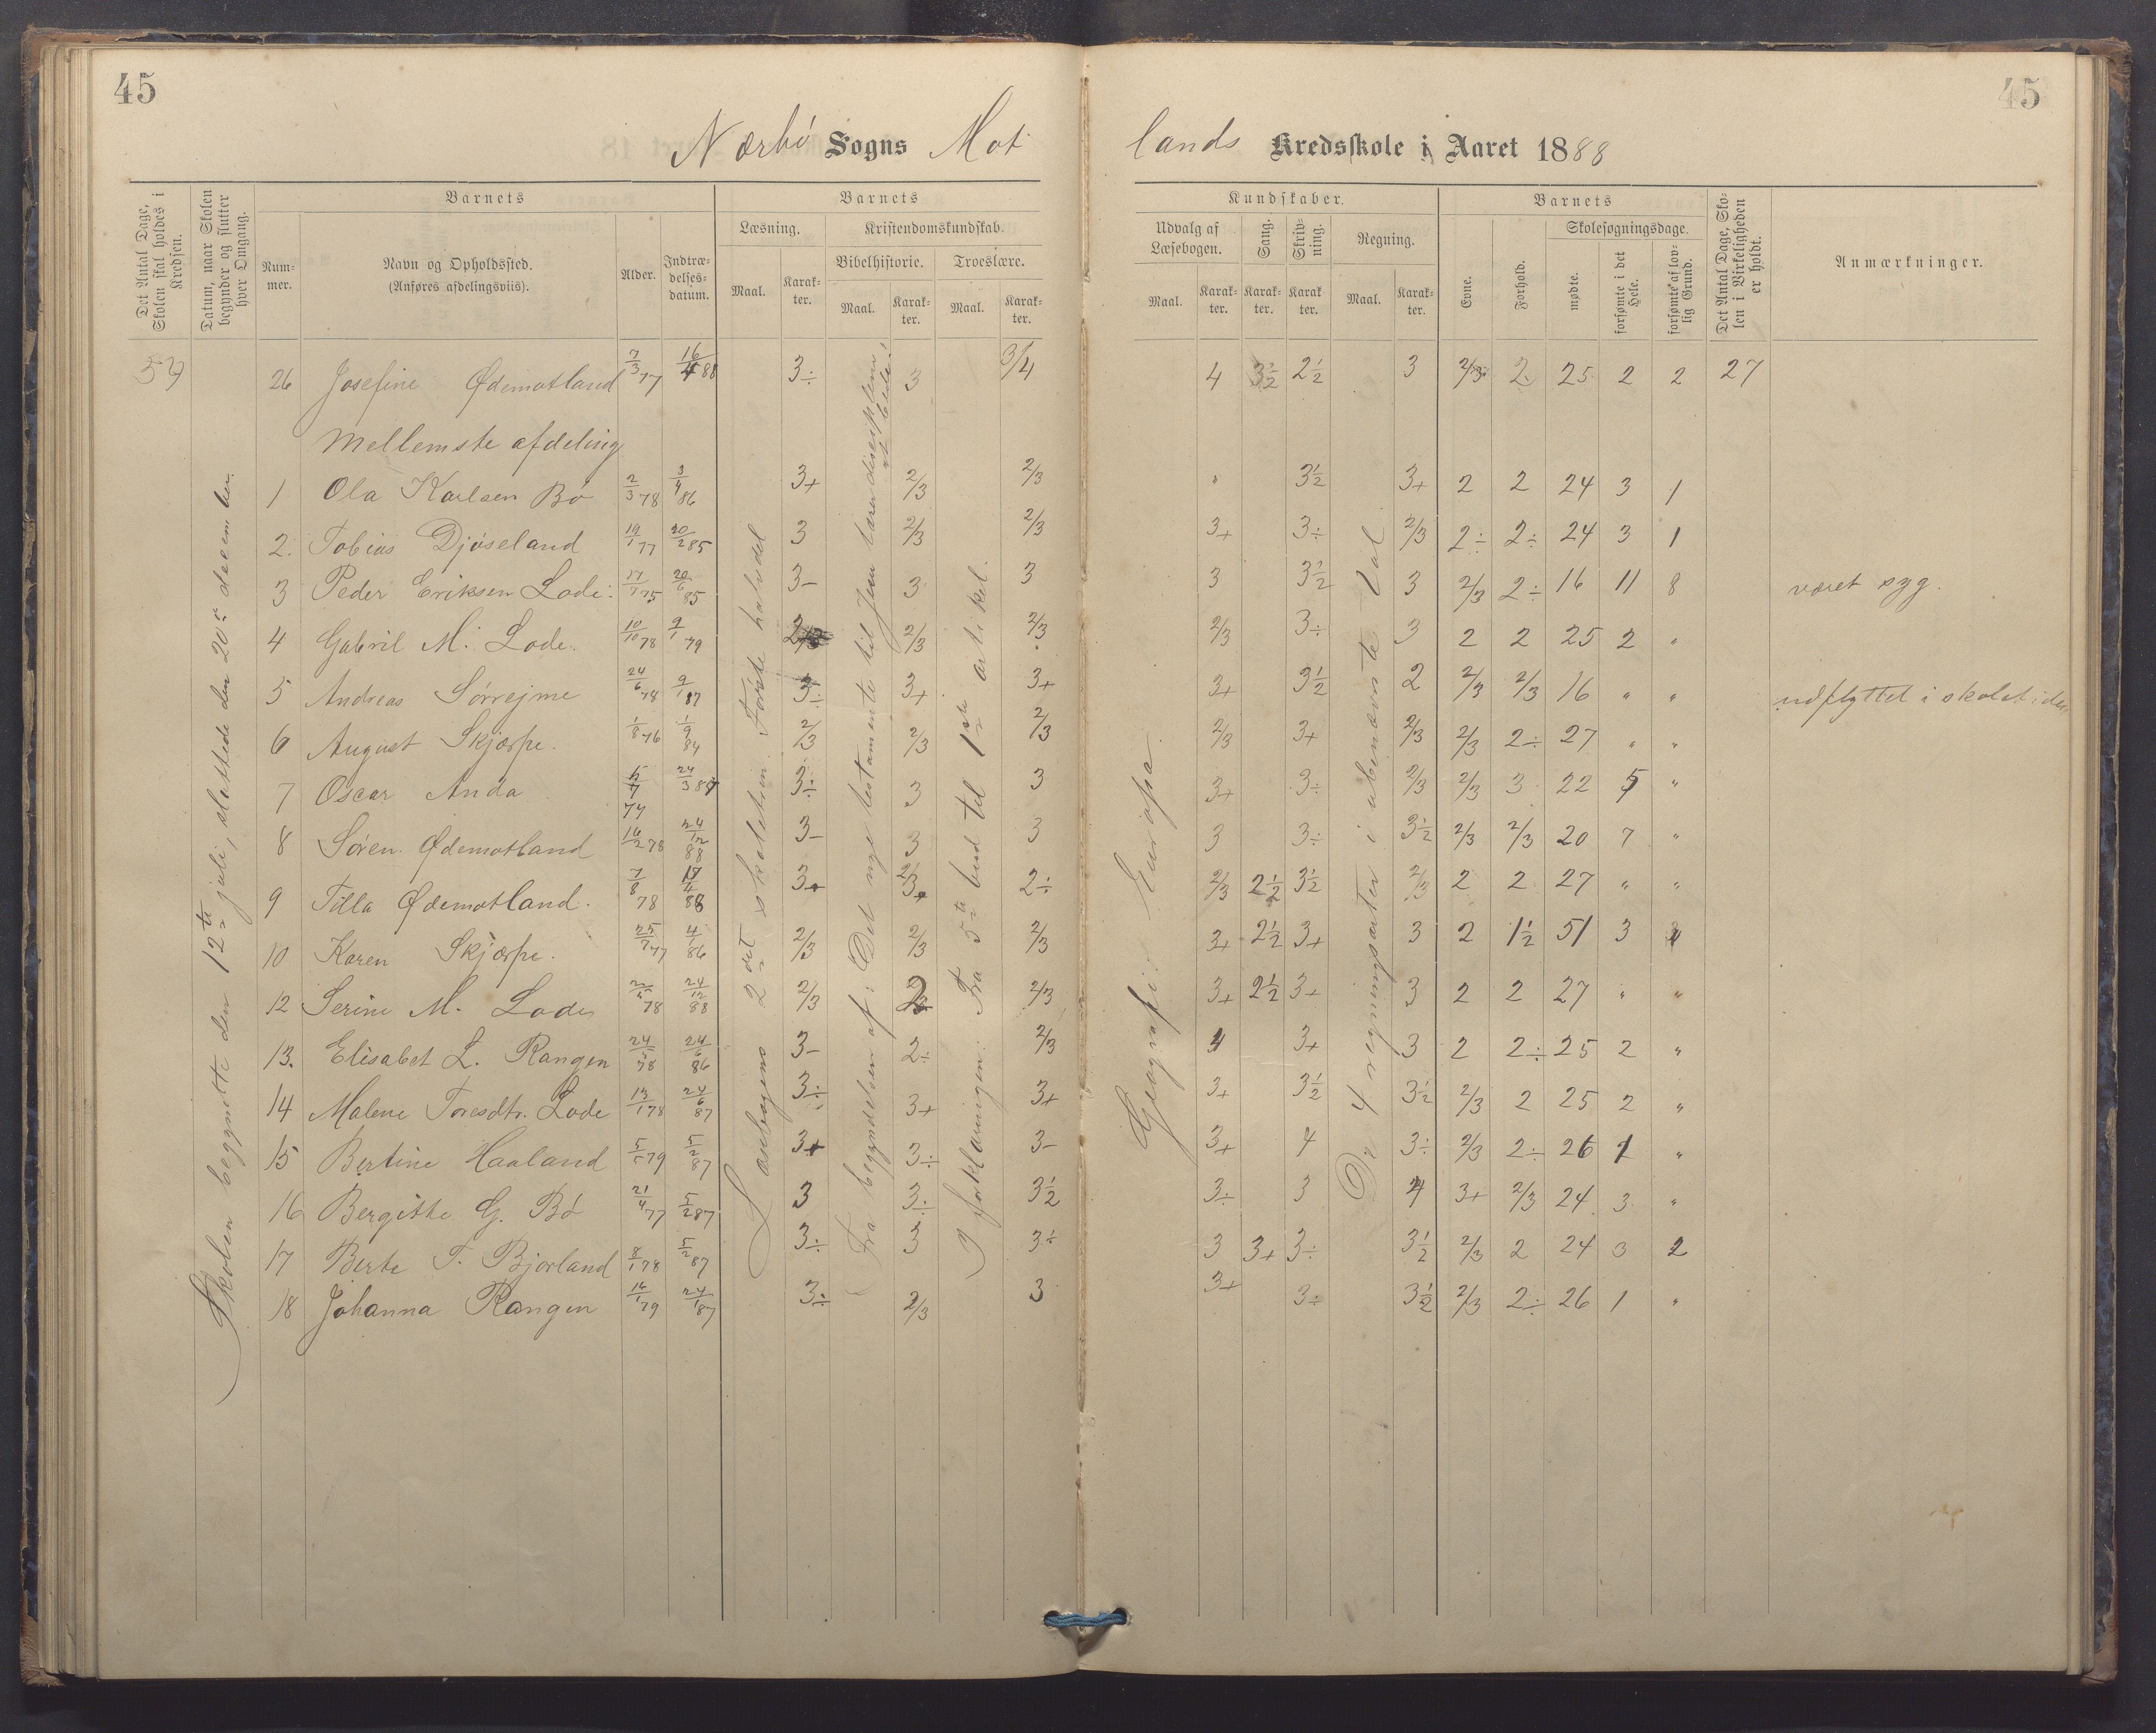 45
45
Nærbö Sogns Mot
lands Kredsskole i Aaret 1888
Det Antal Dage, Skolen skal holdes i Kredsen.
Datum, naar Skolen begynder og slutter hver Omgang.
Barnets
Barnets
Kundskaber.
Barnets
Det Antal Dage, Skolen i Virkeligheden er holdt.
Anmærkninger.
Læsning.
Kristendomskundskab.
Udvalg af Læsebogen.
Sang.
Skrivning.
Regning.
Skolesøgningsdage.
Nummer.
Navn og Opholdssted.
(Anføres afdelingsviis).
Alder.
Indtrædelsesdatum.
Bibelhistorie.
Troeslære.
Evne.
Forhold.
mødte.
forsømte i det Hele.
forsømte af lovlig Grund.
Maal. Karakter. Maal. Karakter. Maal. Karakter.
Maal. Karakter. Karakter. Karakter. Maal. Karakter.
Skolen begynte den 12te juli, sluttede den 20de december.
Læsebogens 2det skoletrin. Første halvdel
Fra begyndelsen af: Det nye testamente til Jesu lærer disciplene at bede.
I forklaringen: Fra 5te bud til 1ste artikel.
Geografi: Europa.
De 4 regningsarter i ubenævnte tal
54 26 Josefine Ødemotland 7/3 77 16/4 88 3÷ 3 3/4 4 3½ 2½ 3 2/3 2 25 2 2 27
Mellemste afdeling
1 Ola Karlsen Bö 2/3 78 3/4 86 3+ 2/3 2/3 " 3½ 3+ 2 2 24 3 1
2. Tobias Djöseland 19/1 77 20/2 85 3 2/3 2/3 3+ 3÷ 2/3 2÷ 2÷ 24 3 1
3 Peder Eriksen Lode 17/7 75 20/6 85 3- 3 3 3 3½ 3 2/3 2÷ 16 11 8 været syg.
4 Gabril M. Lode. 10/10 78 9/1 79 2/3 2/3 2/3 3÷ 3 2 2 25 2 "
5 Andreas Sörrejme 24/6 78 9/1 87 3÷ 3+ 3+ 3+ 3½ 2 2/3 2/3 16 " " udflyttet i skoletiden
6 August Skjærpe. 1/8 76 1/9 84 2/3 2/3 2/3 2/3 3+ 2/3 2/3 2÷ 27 " "
7 Oscar Anda 24/3 3÷ 3 3 3+ 3÷ 2/3 2/3 3 22 5 "
8 Sören Ødemotland 16/2 78 24/12 88 3- 3 3 3 3÷ 3½ 2/3 2/3 20 7 "
9 Tilla Ødemotland. 7/8 78 3+ 2÷ 2/3 2½ 3½ 2/3 2 2 27 " "
10 Karen Skjærpe. 25/7 77 4/1 86 2/3 2/3 2/3 3+ 2½ 3+ 3 2 1½ 51 3
12 Serine M. Lode 78 24/12 88 2/3 2/3 3+ 2½ 3+ 3 2 2 27 " "
13. Elisabet L. Rangen 24/5 78 24/6 86 3- 2÷ 2/3 4 3+ 3 2 2÷ 25 2 "
14 Malene Toresdtr. Lode 13/1 78 24/6 87 3÷ 3+ 3+ 3+ 3½ 3½ 2/3 2 25 2 "
15 Bertine Haaland 5/1 79 5/2 87 3+ 3÷ 3- 3+ 4 3÷ 2/3 2÷ 26 1 "
16 Bergitte G. Bö 21/4 77 5/2 87 3 3÷ 3½ 3÷ 3 4 3+ 2/3 24 3 "
17 Berte T. Bjorland 8/1 78 5/2 87 3÷ 3 3÷ 3 3+ 3÷ 3½ 2/3 2 24 3 2
18 Johanna Rangen 16/1 79 24/1 87 3÷ 2/3 3 3+ 3÷ 3½ 2/3 2÷ 26 1 "